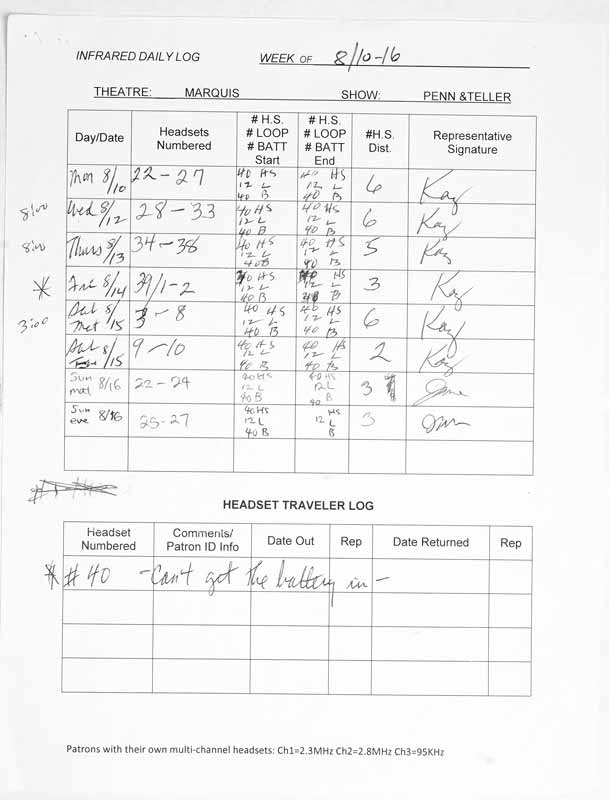 INFRARED DAILY LOG WEEK OF 8/10-16
THEATRE: MARQUIS SHOW: PENN &TELLER
Day/Date Headsets Numbered # H.S. # LOOP # BATT Start # H.S. # LOOP # BATT End #H.S. Dist. Representative Signature
Mon 8/10 22-27 40 HS 12 L 40 B 40 HS 12 L 40 B 6 Kay
8:00 Wed 8/12 28-33 40 HS 12 L 40 B 40 HS 12 L 40 B 6 Kay
8:00 Thurs 8/13 34-38 40 HS 12 L 40 B 40 HS 12 L 40 B 5 Kay
* Fri 8/14 39/1-2 40 HS 12 L 40 B HS 12 L B 3 Kay
3:00 Sat Mat 8/15 3-8 40 HS 12 L 40 B 40 HS 12 L 40 B 6 Kay
Sat 8/15 9-10 40 HS 12 L 40 B 40 HS 12 L 40 B 2 Kay
Sun mat 8/16 22-24 40 HS 12 L 40 B 40 HS 12 L 40 B 3
Sun eve 8/16 25-27 40 HS 12 L 40 B HS 12 L B 3
HEADSET TRAVELER LOG
Headset Numbered Comments/ Patron ID Info Date Out Rep Date Returned Rep
* # 40 - Can't get the battery in -
Patrons with their own multi-channel headsets: Ch1=2.3MHz Ch2=2.8MHz Ch3=95KHz